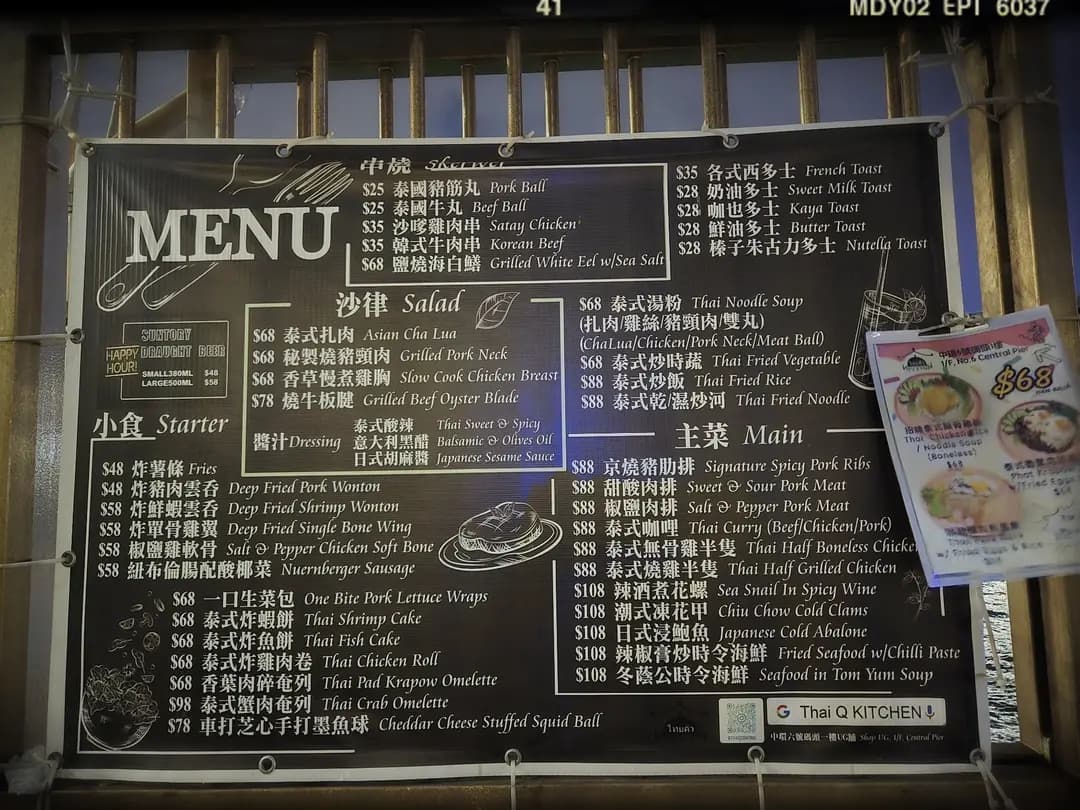 41
MDY02 EPI 6037
MENU
串燒 Skerwer
$25 泰國豬筋丸 Pork Ball
$25 泰國牛丸 Beef Ball
$35 沙嗲雞肉串 Satay Chicken
$35 韓式牛肉串 Korean Beef
$68 鹽燒海白鱔 Grilled White Eel w/Sea Salt
$35 各式西多士 French Toast
$28 奶油多士 Sweet Milk Toast
$28 咖也多士 Kaya Toast
$28 鮮油多士 Butter Toast
$28 榛子朱古力多士 Nutella Toast
SUNTORY
DRAUGHT BEER
HAPPY
HOUR!
SMALL380ML $48
LARGE500ML $58
沙律 Salad
$68 泰式扎肉 Asian Cha Lua
$68 秘製燒豬頸肉 Grilled Pork Neck
$68 香草慢煮雞胸 Slow Cook Chicken Breast
$78 燒牛板腱 Grilled Beef Oyster Blade
醬汁Dressing
泰式酸辣 Thai Sweet & Spicy
意大利黑醋 Balsamic & Olives Oil
日式胡麻醬 Japanese Sesame Sauce
$68 泰式湯粉 Thai Noodle Soup
(扎肉/雞絲/豬頸肉/雙丸)
(ChaLua/Chicken/Pork Neck/Meat Ball)
$68 泰式炒時蔬 Thai Fried Vegetable
$88 泰式炒飯 Thai Fried Rice
$88 泰式乾/濕炒河 Thai Fried Noodle
小食 Starter
$48 炸薯條 Fries
$48 炸豬肉雲吞 Deep Fried Pork Wonton
$58 炸鮮蝦雲吞 Deep Fried Shrimp Wonton
$58 炸單骨雞翼 Deep Fried Single Bone Wing
$58 椒鹽雞軟骨 Salt & Pepper Chicken Soft Bone
$58 紐布倫腸配酸椰菜 Nuernberger Sausage
$68 一口生菜包 One Bite Pork Lettuce Wraps
$68 泰式炸蝦餅 Thai Shrimp Cake
$68 泰式炸魚餅 Thai Fish Cake
$68 泰式炸雞肉卷 Thai Chicken Roll
$68 香葉肉碎奄列 Thai Pad Krapow Omelette
$98 泰式蟹肉奄列 Thai Crab Omelette
$78 車打芝心手打墨魚球 Cheddar Cheese Stuffed Squid Ball
主菜 Main
$88 京燒豬肋排 Signature Spicy Pork Ribs
$88 甜酸肉排 Sweet & Sour Pork Meat
$88 椒鹽肉排 Salt & Pepper Pork Meat
$88 泰式咖哩 Thai Curry (Beef/Chicken/Pork)
$88 泰式無骨雞半隻 Thai Half Boneless Chicken
$88 泰式燒雞半隻 Thai Half Grilled Chicken
$108 辣酒煮花螺 Sea Snail In Spicy Wine
$108 潮式凍花甲 Chiu Chow Cold Clams
$108 日式浸鮑魚 Japanese Cold Abalone
$108 辣椒膏炒時令海鮮 Fried Seafood w/Chilli Paste
$108 冬蔭公時令海鮮 Seafood in Tom Yum Soup
ไทยคิว
G Thai Q KITCHEN
中環六號碼頭一樓UG舖 Shop UG, 1/F, Central Pier
1/F, No.6 Central Pier
$68
Thai Chicken Rice
/ Noodle Soup
(Boneless)
$68